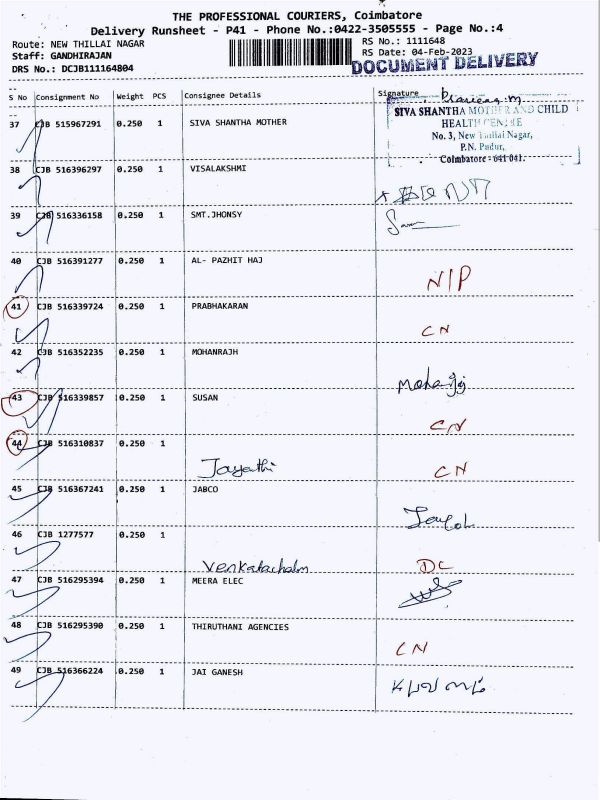 THE PROFESSIONAL COURIERS, Coimbatore
Delivery Runsheet - P41 - Phone No.:0422-3505555 - Page No.:4
Route: NEW THILLAI NAGAR RS No.: 1111648
Staff: GANDHIRAJAN RS Date: 04-Feb-2023
DRS No.: DCJB111164804 DOCUMENT DELIVERY
S No Consignment No Weight PCS Consignee Details Signature
37 CJB 515967291 0.250 1 SIVA SHANTHA MOTHER
SIVA SHANTHA MOTHER AND CHILD
HEALTH CENTRE
No. 3, New Thillai Nagar,
P.N. Pudur,
Coimbatore - 641 041.
38 CJB 516396297 0.250 1 VISALAKSHMI
39 CJB 516336158 0.250 1 SMT.JHONSY
40 CJB 516391277 0.250 1 AL- PAZHIT HAJ
N/P
41 CJB 516339724 0.250 1 PRABHAKARAN
CN
42 CJB 516352235 0.250 1 MOHANRAJH
43 CJB 516339857 0.250 1 SUSAN
CN
44 CJB 516310837 0.250 1
Jayathi CN
45 CJB 516367241 0.250 1 JABCO
46 CJB 1277577 0.250 1
Venkatachalm DC
47 CJB 516295394 0.250 1 MEERA ELEC
48 CJB 516295390 0.250 1 THIRUTHANI AGENCIES
CN
49 CJB 516366224 0.250 1 JAI GANESH